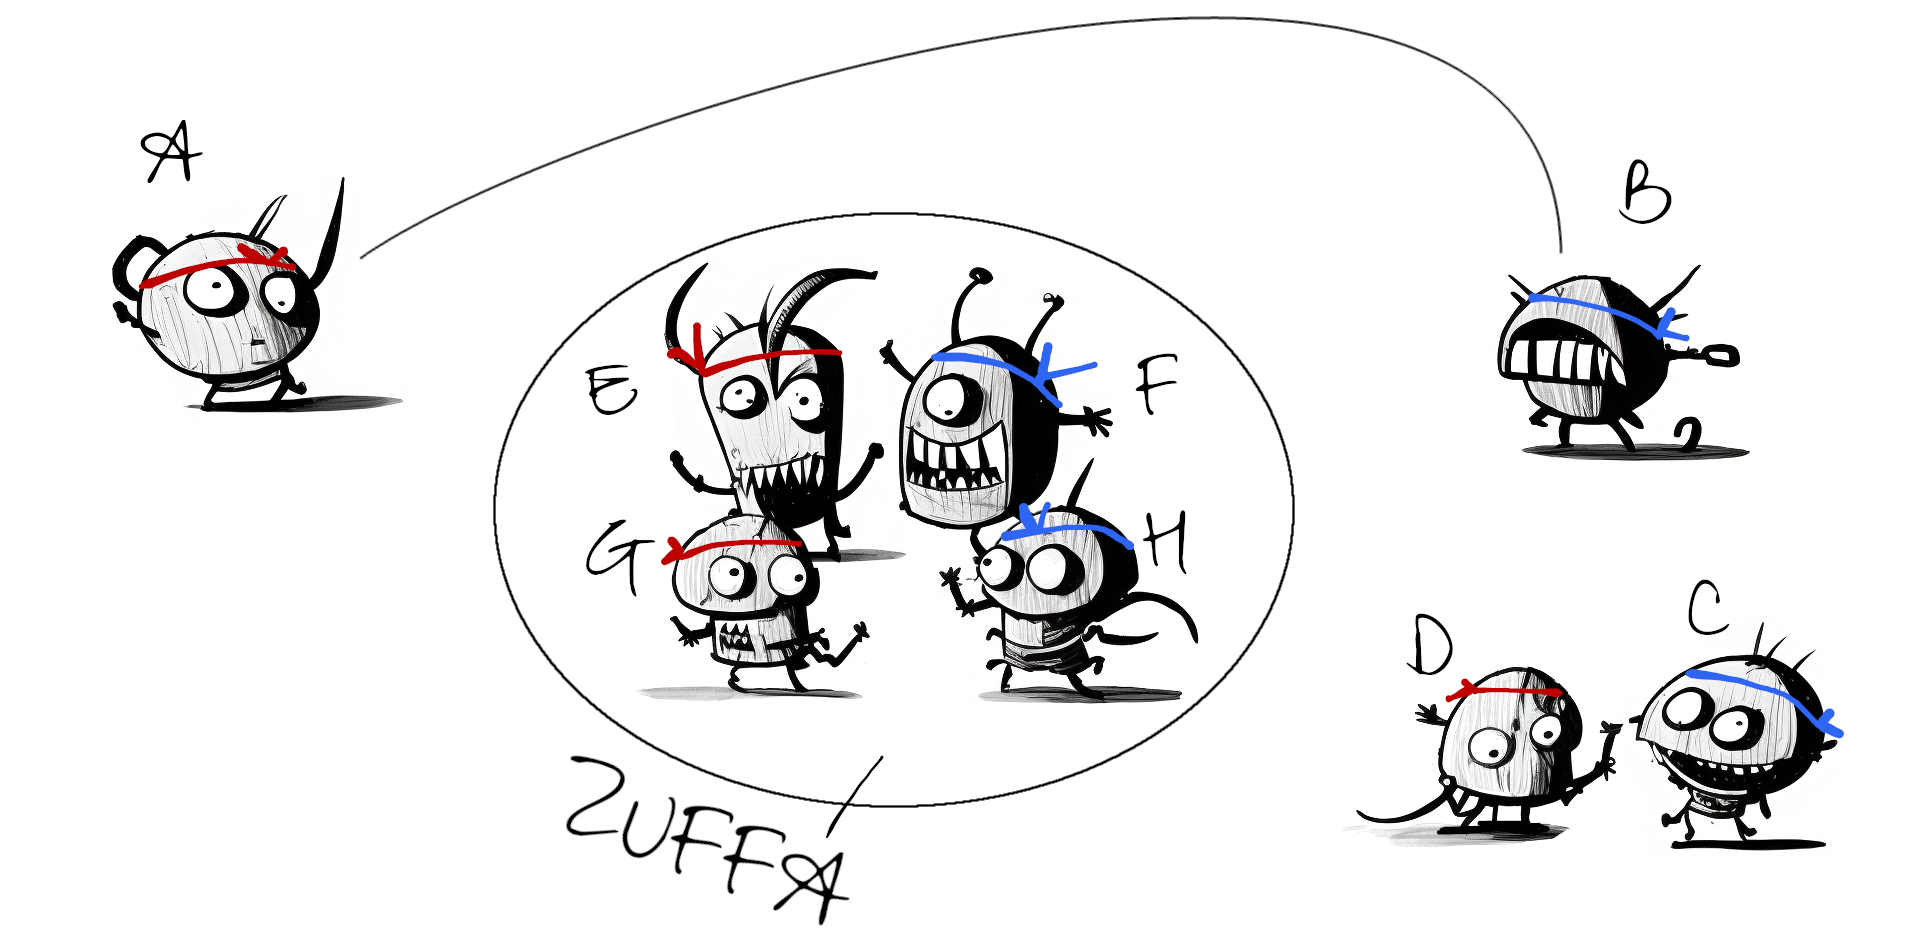 A
B
E
F
G
H
D
C
ZUFFA